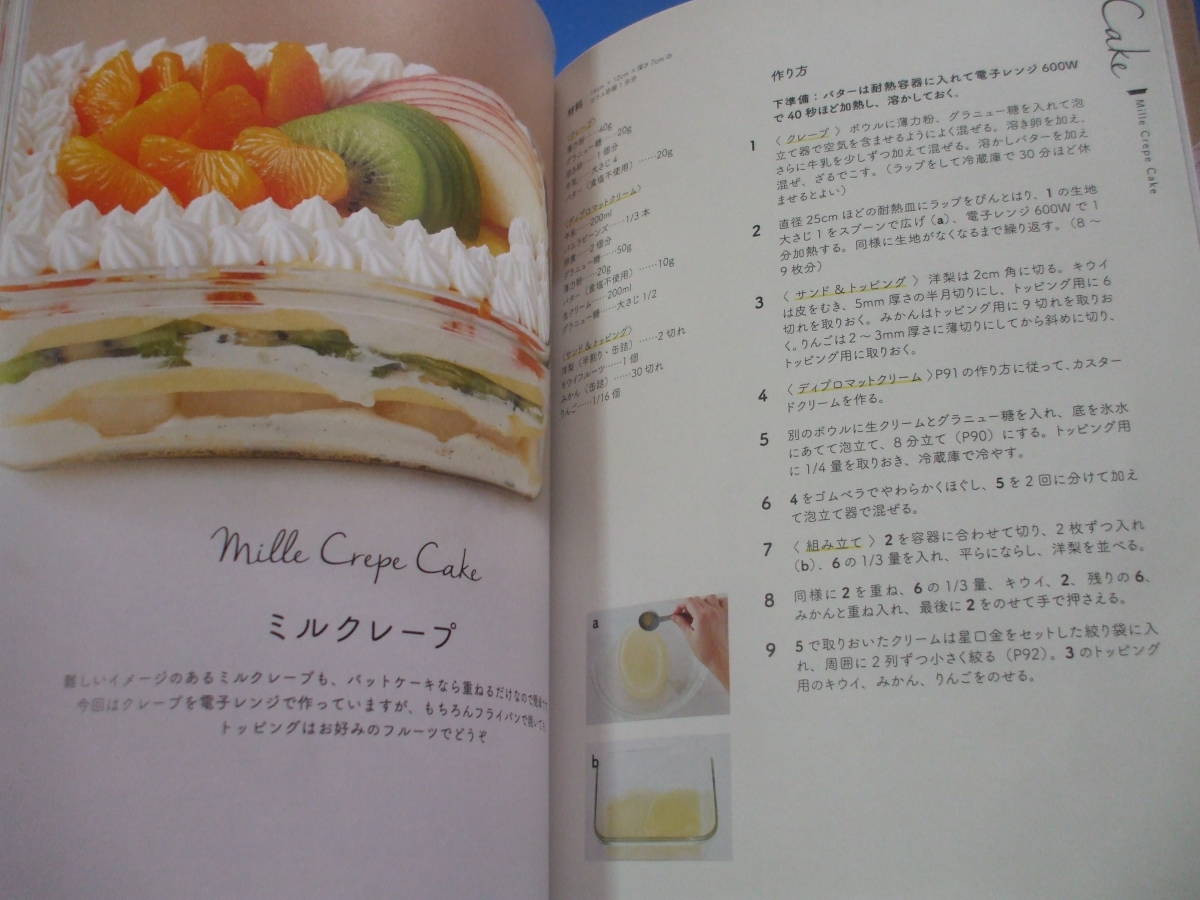 Mille Crepe Cake
ミルクレープ
難しいイメージのあるミルクレープも、バットケーキなら重ねるだけなので
今回はクレープを電子レンジで作っていますが、もちろんフライパンで
トッピングはお好みのフルーツでどうぞ
材料
〈クレープ〉
薄力粉……40g
グラニュー糖……20g
溶き卵……1個分
牛乳……大さじ4
バター(食塩不使用)……20g
〈ディプロマットクリーム〉
牛乳……200ml
バニラビーンズ……1/3本
卵黄……2個分
グラニュー糖……50g
薄力粉……20g
バター(食塩不使用)……10g
生クリーム……200ml
グラニュー糖……大さじ1/2
〈サンド&トッピング〉
洋梨(半割り・缶詰)……2切れ
キウイフルーツ……1個
みかん(缶詰)……30切れ
りんご……1/16個
作り方
下準備:バターは耐熱容器に入れて電子レンジ600W
で40秒ほど加熱し、溶かしておく。
1 〈クレープ〉ボウルに薄力粉、グラニュー糖を入れて泡
立て器で空気を含ませるようによく混ぜる。溶き卵を加え、
さらに牛乳を少しずつ加えて混ぜる。溶かしバターを加え
混ぜ、ざるでこす。(ラップをして冷蔵庫で30分ほど休
ませるとよい)
2 直径25cmほどの耐熱皿にラップをぴんとはり、1の生地
大さじ1をスプーンで広げ(a)、電子レンジ600Wで1
分加熱する。同様に生地がなくなるまで繰り返す。(8〜
9枚分)
3 〈サンド&トッピング〉洋梨は2cm角に切る。キウイ
は皮をむき、5mm厚さの半月切りにし、トッピング用に6
切れを取りおく。みかんはトッピング用に9切れを取りお
く。りんごは2〜3mm厚さに薄切りにしてから斜めに切り、
トッピング用に取りおく。
4 〈ディプロマットクリーム〉P91の作り方に従って、カスター
ドクリームを作る。
5 別のボウルに生クリームとグラニュー糖を入れ、底を氷水
にあてて泡立て、8分立て(P90)にする。トッピング用
に1/4量を取りおき、冷蔵庫で冷やす。
6 4をゴムベラでやわらかくほぐし、5を2回に分けて加え
て泡立て器で混ぜる。
7 〈組み立て〉2を容器に合わせて切り、2枚ずつ入れ
(b)、6の1/3量を入れ、平らにならし、洋梨を並べる。
8 同様に2を重ね、6の1/3量、キウイ、2、残りの6、
みかんと重ね入れ、最後に2をのせて手で押さえる。
9 5で取りおいたクリームは星口金をセットした絞り袋に入
れ、周囲に2列ずつ小さく絞る(P92)。3のトッピング
用のキウイ、みかん、りんごをのせる。
a
b
Cake
Mille Crepe Cake